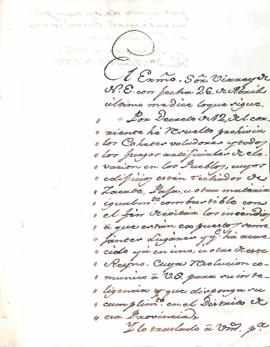 El Exmo. Sôr Virrey de
N.E. con fecha 26 de Abril
ultimo me dice lo que sigue.
" Por Decreto de 12 del cor-
" riente hé resuelto prohivir
" los Cohetes voladores y todos
" los fuegos artificiales de ele-
" vacion en los Pueblos, cuyos
" edificios estén techados de
" Zacate, Paja, u otra materia
" igualmte. combustible con
" el fin de evitar los incendios
" á que están expuestos seme-
" jantes lugares y qe. há acae-
" cido yá en uno, u otro de este
" Reyno. Cuya resolucion co-
" munico á V.S. para su inte-
" ligencia y que disponga su
" cumplimto. en el Distrito de
" esa Provincia.
Y lo traslado á Vm. pa.